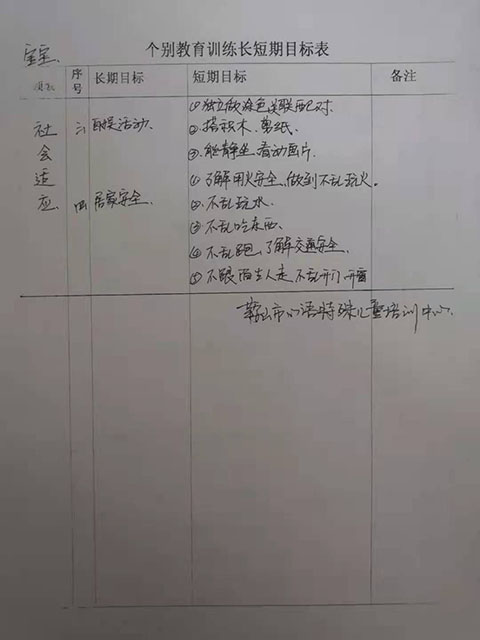 宝宝
个别教育训练长短期目标表
项目 序号 长期目标 短期目标 备注
社会适应
三 自娱活动.
①独立做涂色关联配对.
②搭积木.剪纸.
③能静坐.看动画片.
四 居家安全.
①了解用火安全.做到不乱玩火。
②不乱玩水.
③不乱吃东西.
④不乱跑.了解交通安全.
⑤不跟陌生人走.不乱开门.开窗
鞍山市心语特殊儿童培训中心.